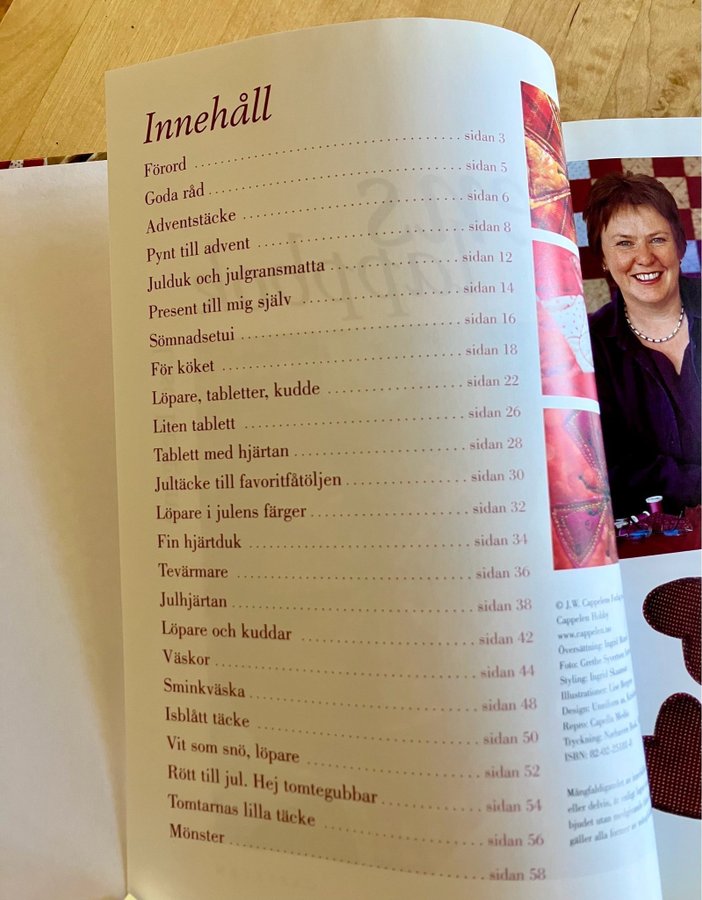 Innehåll
Förord sidan 3
Goda råd sidan 5
Adventstäcke sidan 6
Pynt till advent sidan 8
Julduk och julgransmatta sidan 12
Present till mig själv sidan 14
Sömnadsetui sidan 16
För köket sidan 18
Löpare, tabletter, kudde sidan 22
Liten tablett sidan 26
Tablett med hjärtan sidan 28
Jultäcke till favoritfåtöljen sidan 30
Löpare i julens färger sidan 32
Fin hjärtduk sidan 34
Tevärmare sidan 36
Julhjärtan sidan 38
Löpare och kuddar sidan 42
Väskor sidan 44
Sminkväska sidan 48
Isblått täcke sidan 50
Vit som snö, löpare sidan 52
Rött till jul. Hej tomtegubbar sidan 54
Tomtarnas lilla täcke sidan 56
Mönster sidan 58
© J.W. Cappelens Forlag
Cappelen Hobby
www.cappelen.no
Översättning: Ingrid
Foto: Grethe Syvertsen
Styling: Ingrid
Illustrationer: Lise
Design:
Repro: Capella Media
Tryckning:
ISBN:
Mångfaldigandet av
eller delvis, är enligt
bjudet utan
gäller alla former av